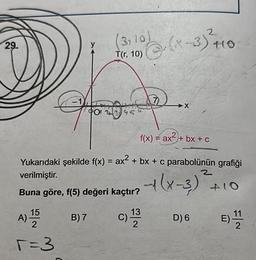 29.
(3,10) a(x-3)² +10
y
T(r, 10)
-1
7
x
f(x) = ax² + bx + c
Yukarıdaki şekilde f(x) = ax² + bx + c parabolünün grafiği
verilmiştir.
Buna göre, f(5) değeri kaçtır?
-1(x-3)² +10
A) 15/2 B) 7 C) 13/2 D) 6 E) 11/2
r=3